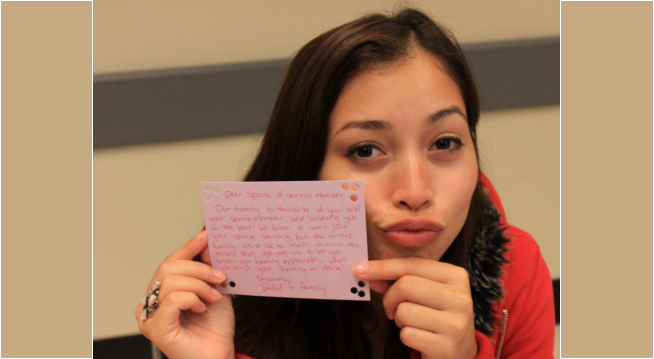 Dear Spouse of service member,
Our family is thinking of you and
your service member, and sending you
all the love! We know it isn't just
your spouse serving, but the entire
family. We'd like to reach across the
miles that separate us to let you
know our family appreciates what
you and your family is doing!
Sincerely
+ family